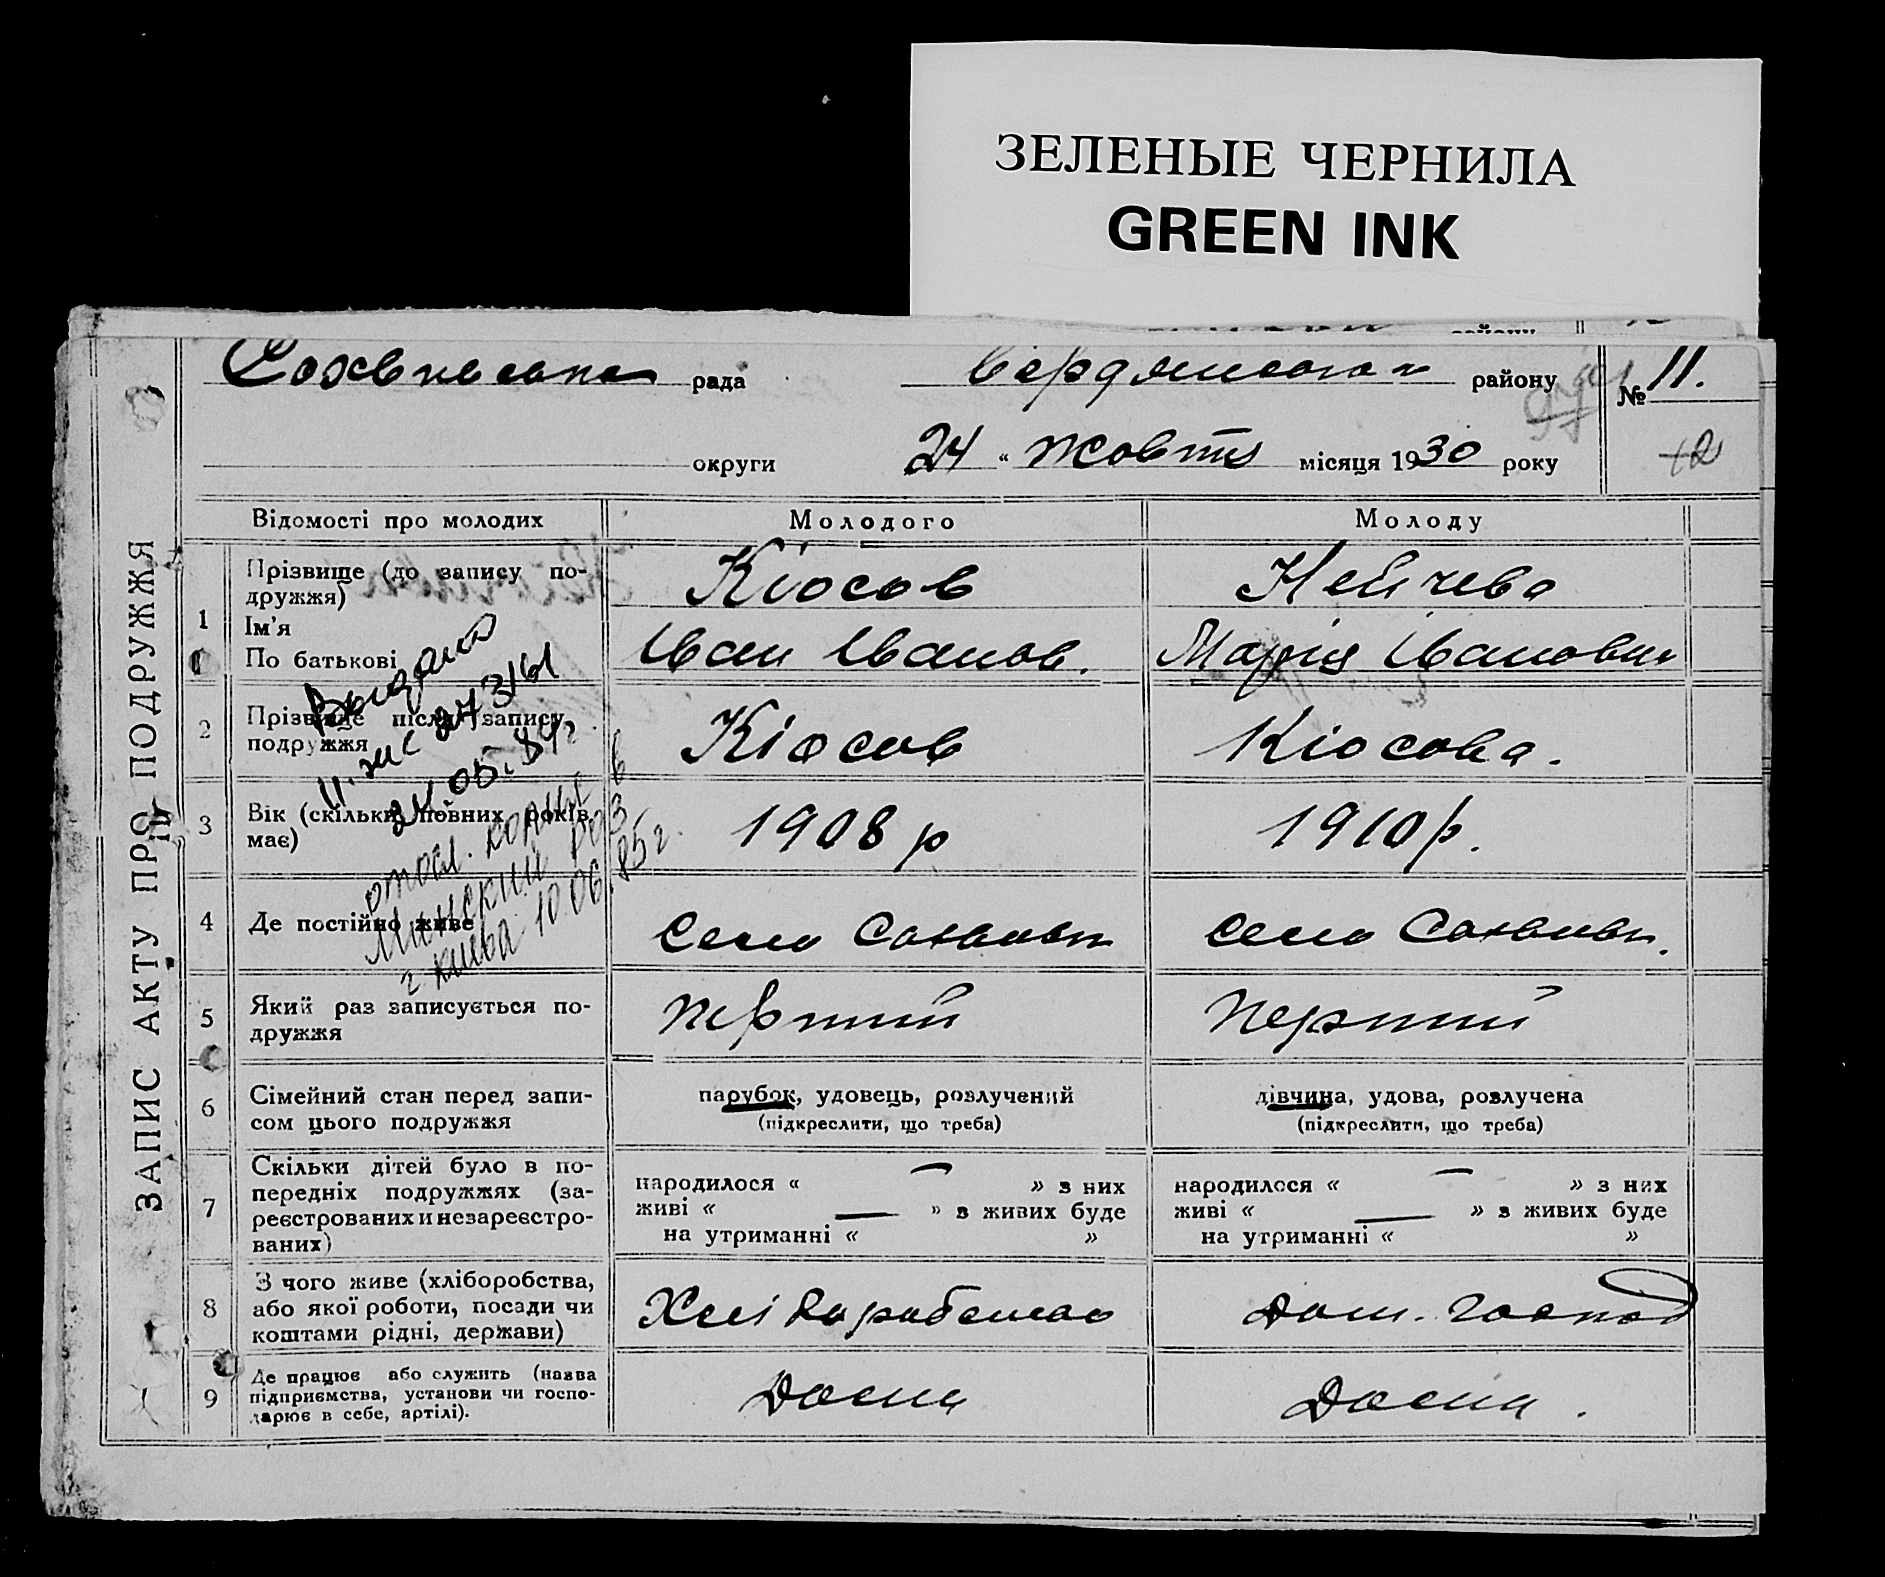 ЗЕЛЕНЫЕ ЧЕРНИЛА
GREEN INK
району
рада Бердянского району № 11.
округи 24 " жовтя місяця 1930 року
12
ЗАПИС АКТУ ПРО ПОДРУЖЖЯ
Відомості про молодих Молодого Молоду
1 Прізвище (до запису по-
дружжя) Кіосов Нейчева
Ім'я
По батькові Іван Іванов. Марія Івановна
2 Прізвище після запису
подружжя Кіосов Кіосова.
3 Вік (скільки повних років
має) 1908 р 1910 р.
4 Де постійно живе село село
5 Який раз записується по-
дружжя перший перший
6 Сімейний стан перед запи-
сом цього подружжя
парубок, удовець, розлучений
(підкреслити, що треба)
дівчина, удова, розлучена
(підкреслити, що треба)
7 Скільки дітей було в по-
передніх подружжях (за-
реєстрованих и незареєстро-
ваних)
народилося « — » з них
живі « — » з живих буде
на утриманні « »
народилося « — » з них
живі « — » з живих буде
на утриманні « »
8 З чого живе (хліборобства,
або якої роботи, посади чи
коштами рідні, держави) Дом. господ
9 Де працює або служить (назва
підприємства, установи чи госпо-
дарює в себе, артілі).
Выдано
24.05.84г
отосл. копия в
Минский
г Киева 10.06.85г.